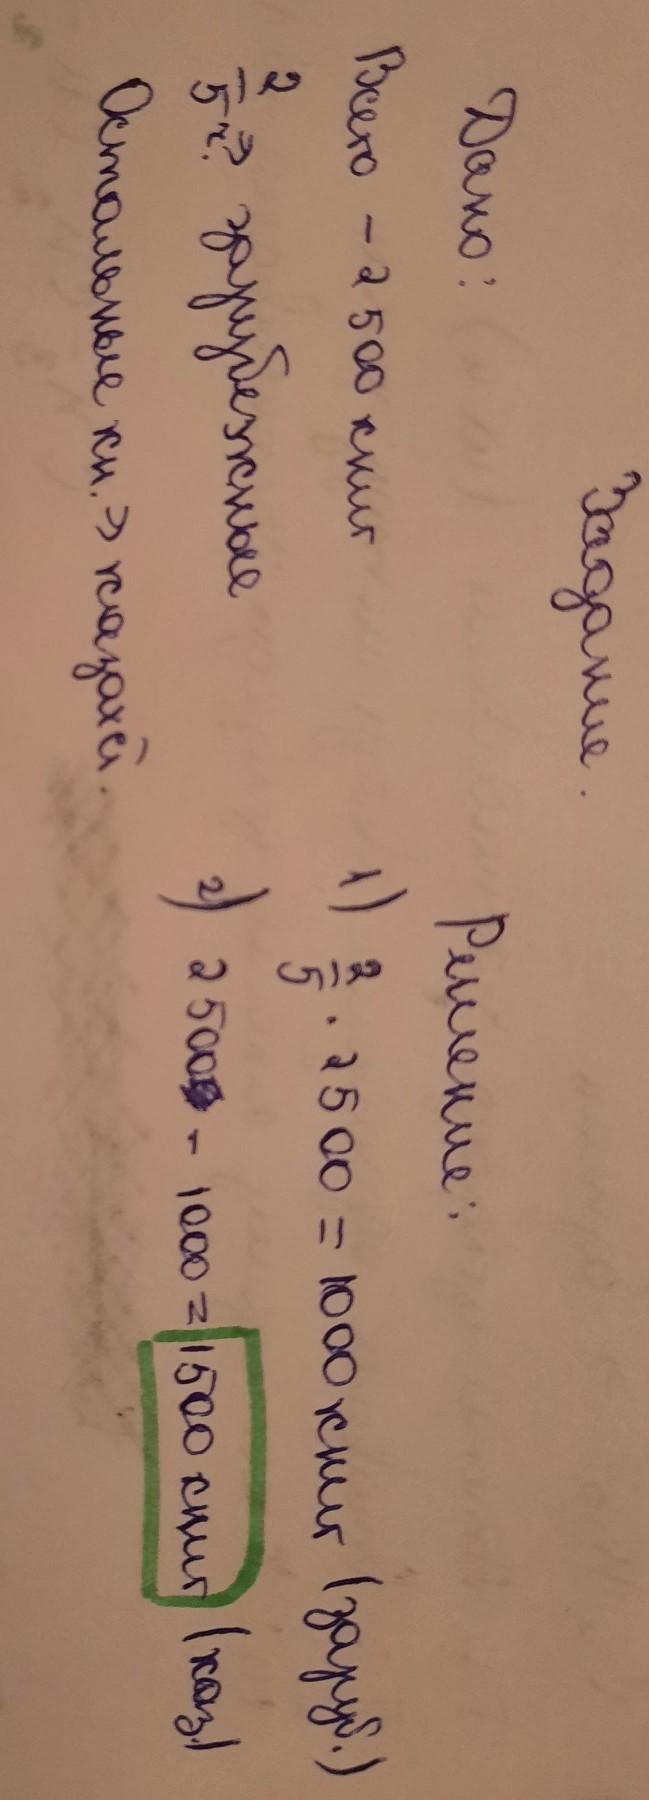 Задание.
Дано:
Всего - 2500 книг
2/5 ч. → зарубежные
Остальные кн. → казахс.
Решение:
1) 2/5 · 2500 = 1000 книг (заруб.)
2) 2500 - 1000 = 1500 книг (каз.)